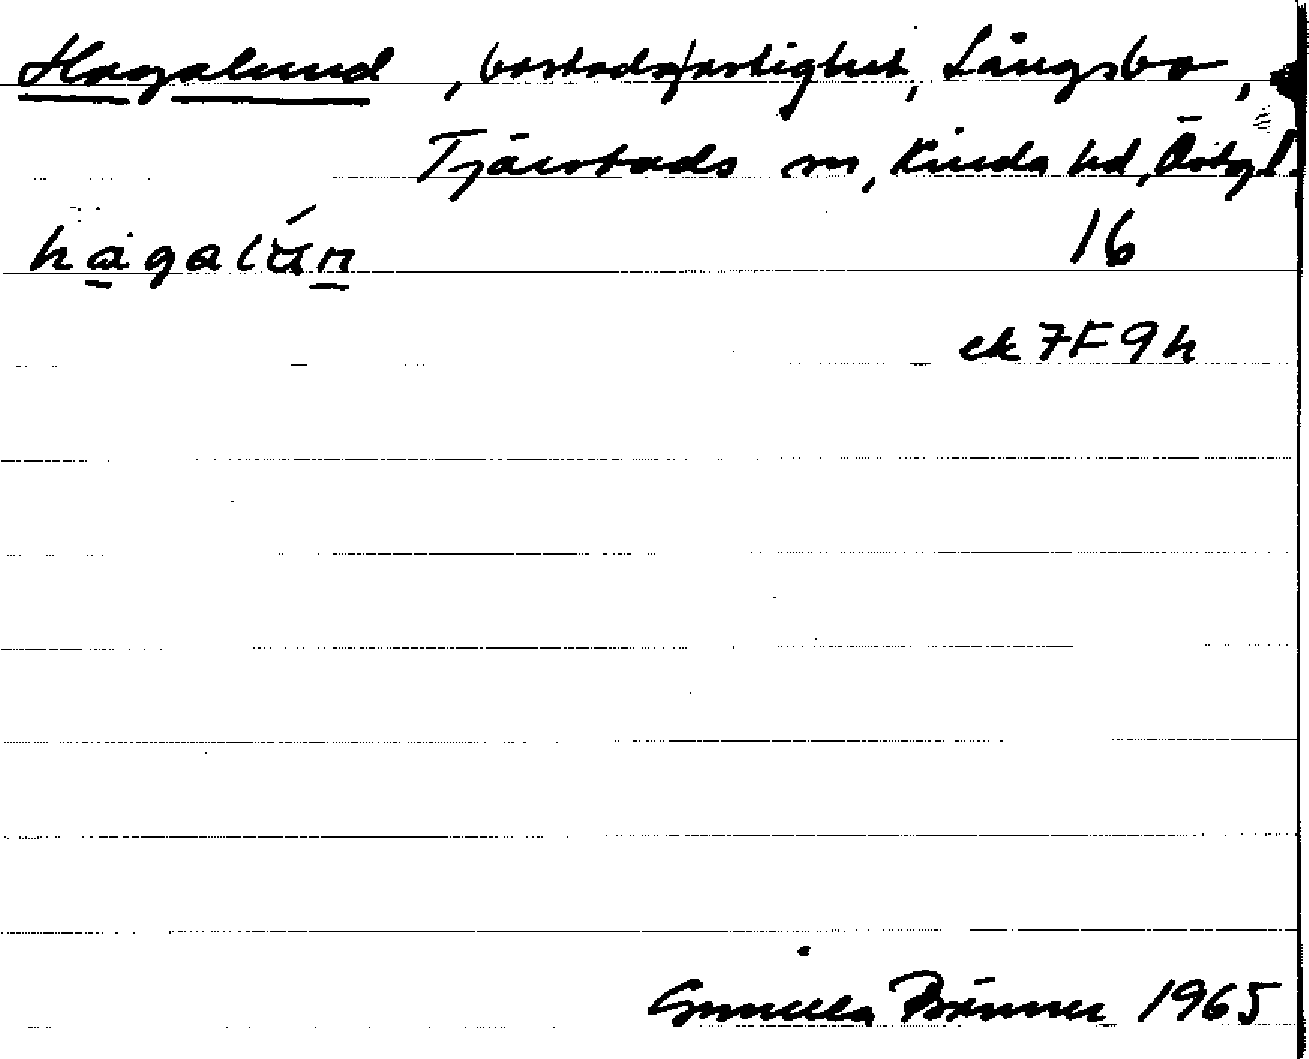 Hagalund, bostadsfastighet, Långsbo,
Tjärstads sn, Kinda hd, Östgl.
hagalún 16
ek 7F9h
Gunilla 1965